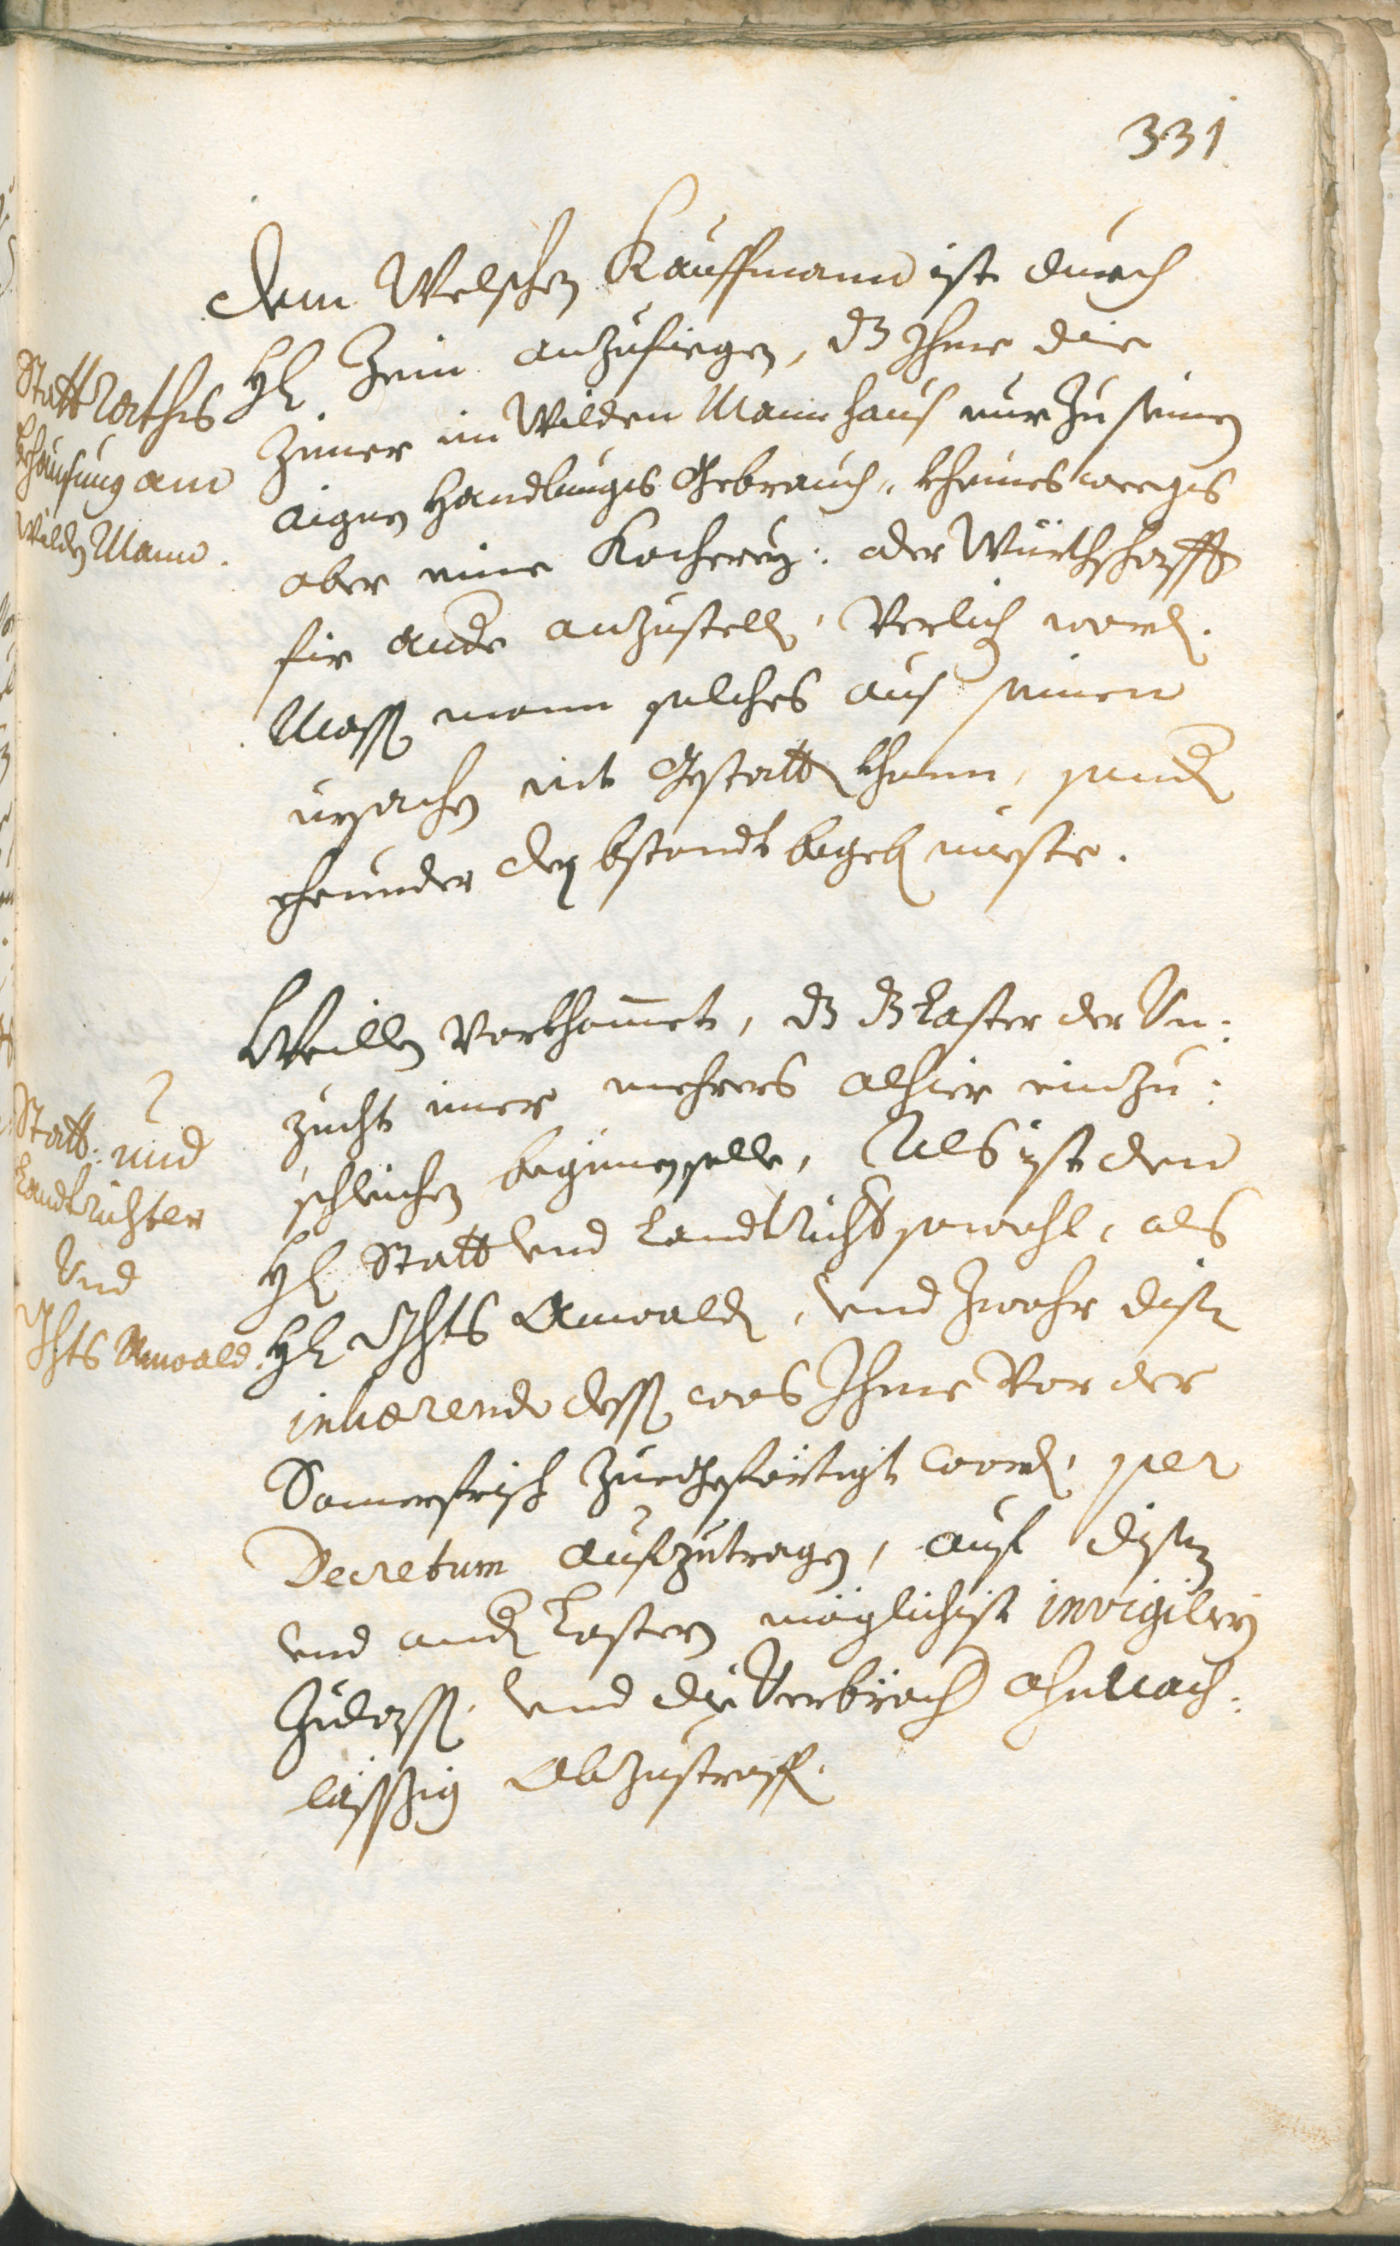 331
Statt Raths
behausung am
Wilden Mann.
Dem Welschen Kauffmann ist durch
H: Zein anzufiegen, dz Ihme die
Zimer im Wilden Mann haus nur zu seinen
aignen Handlungs Gebrauch, kheines weegs
aber eine Kocherey: oder Würthschafft
fir ande anzustellen, Verlichen worden.
Massen mann solches aus seinen
ursachen nit Gestatten khann, sondern
ehender den bstandt begeben mieste.
Statt: und
Landtrichter
Und
Ghts Anwald.
Weillen Vorkhommet, dz dz Laster der Un:
zucht imer mehrers alhier einzu:
schleichen beginnen solle, Als ist den
H: Statt und Landtricht sowohl, als
H: Ghts Anwalden, und zwahr disen
inhærendo dessen was Ihme Vor der
Somerfrisch zuegefertigt worden, per
Decretum aufzutragen, auf disen
und andere Laster möglichist invigilirn
zulassen, und die Verbrecher ohnnach:
lässig abzustraffen.